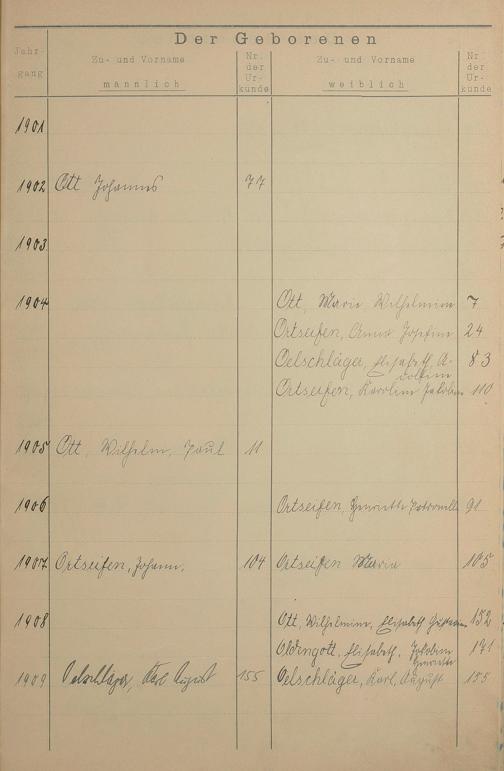 Der Geborenen
Jahr-
gang
Zu- und Vorname
männlich
Nr.
der
Ur-
kunde
Zu- und Vorname
weiblich
Nr.
der
Ur-
kunde
1901
1902 Ott Johannes 77
1903
1904 Ott, Maria Wilhelmine 7
Ortseifen, Anna Josefine 24
Oelschläger, Elisabeth A- 83
doline
Ortseifen, Karoline Jakobine 110
1905 Ott, Wilhelm, Paul 11
1906 Ortseifen, Henriette Petronella 91
1907 Ortseifen, Johann. 104 Ortseifen Maria 105
1908 Ott, Wilhelmine, Elisabeth 152
Oldengott, Elisabeth, Jakobine
Henriette
1909 Oelschläger, Karl August 155 Oelschläger, Karl, August 155